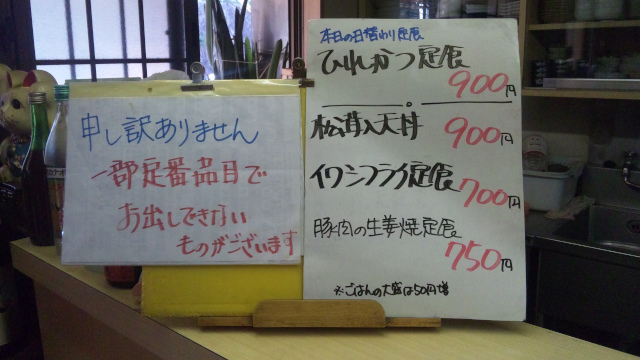 申し訳ありません
一部定番品目で
お出しできない
ものがございます
本日の日替わり定食
ひれかつ定食
900円
松茸入天丼 900円
イワシフライ定食 700円
豚肉の生姜焼定食
750円
※ごはんの大盛は50円増